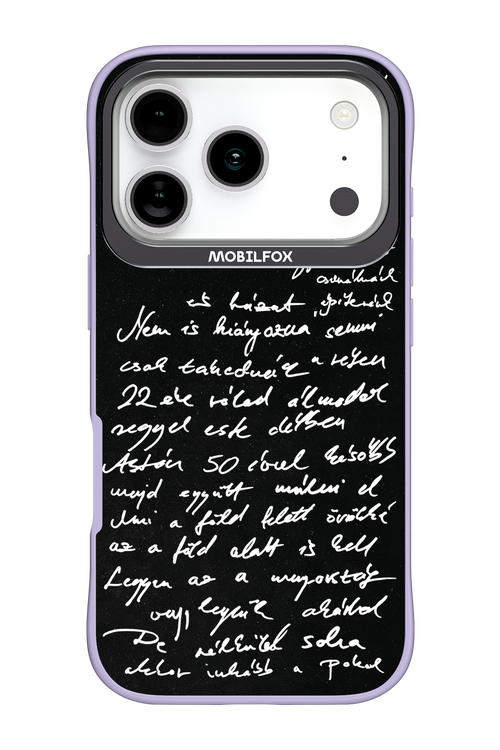 MOBILFOX
csinálnál
és házat építenél
Nem is hiányozna semmi
csak
22 éve rólad álmodok
reggel este délben
Aztán 50 évvel később
majd együtt múlni el
Ami a föld felett örökké
az a föld alatt is kell
Legyen az a mennyország
vagy legyünk akárhol
De nélküled soha
akkor inkább a pokol